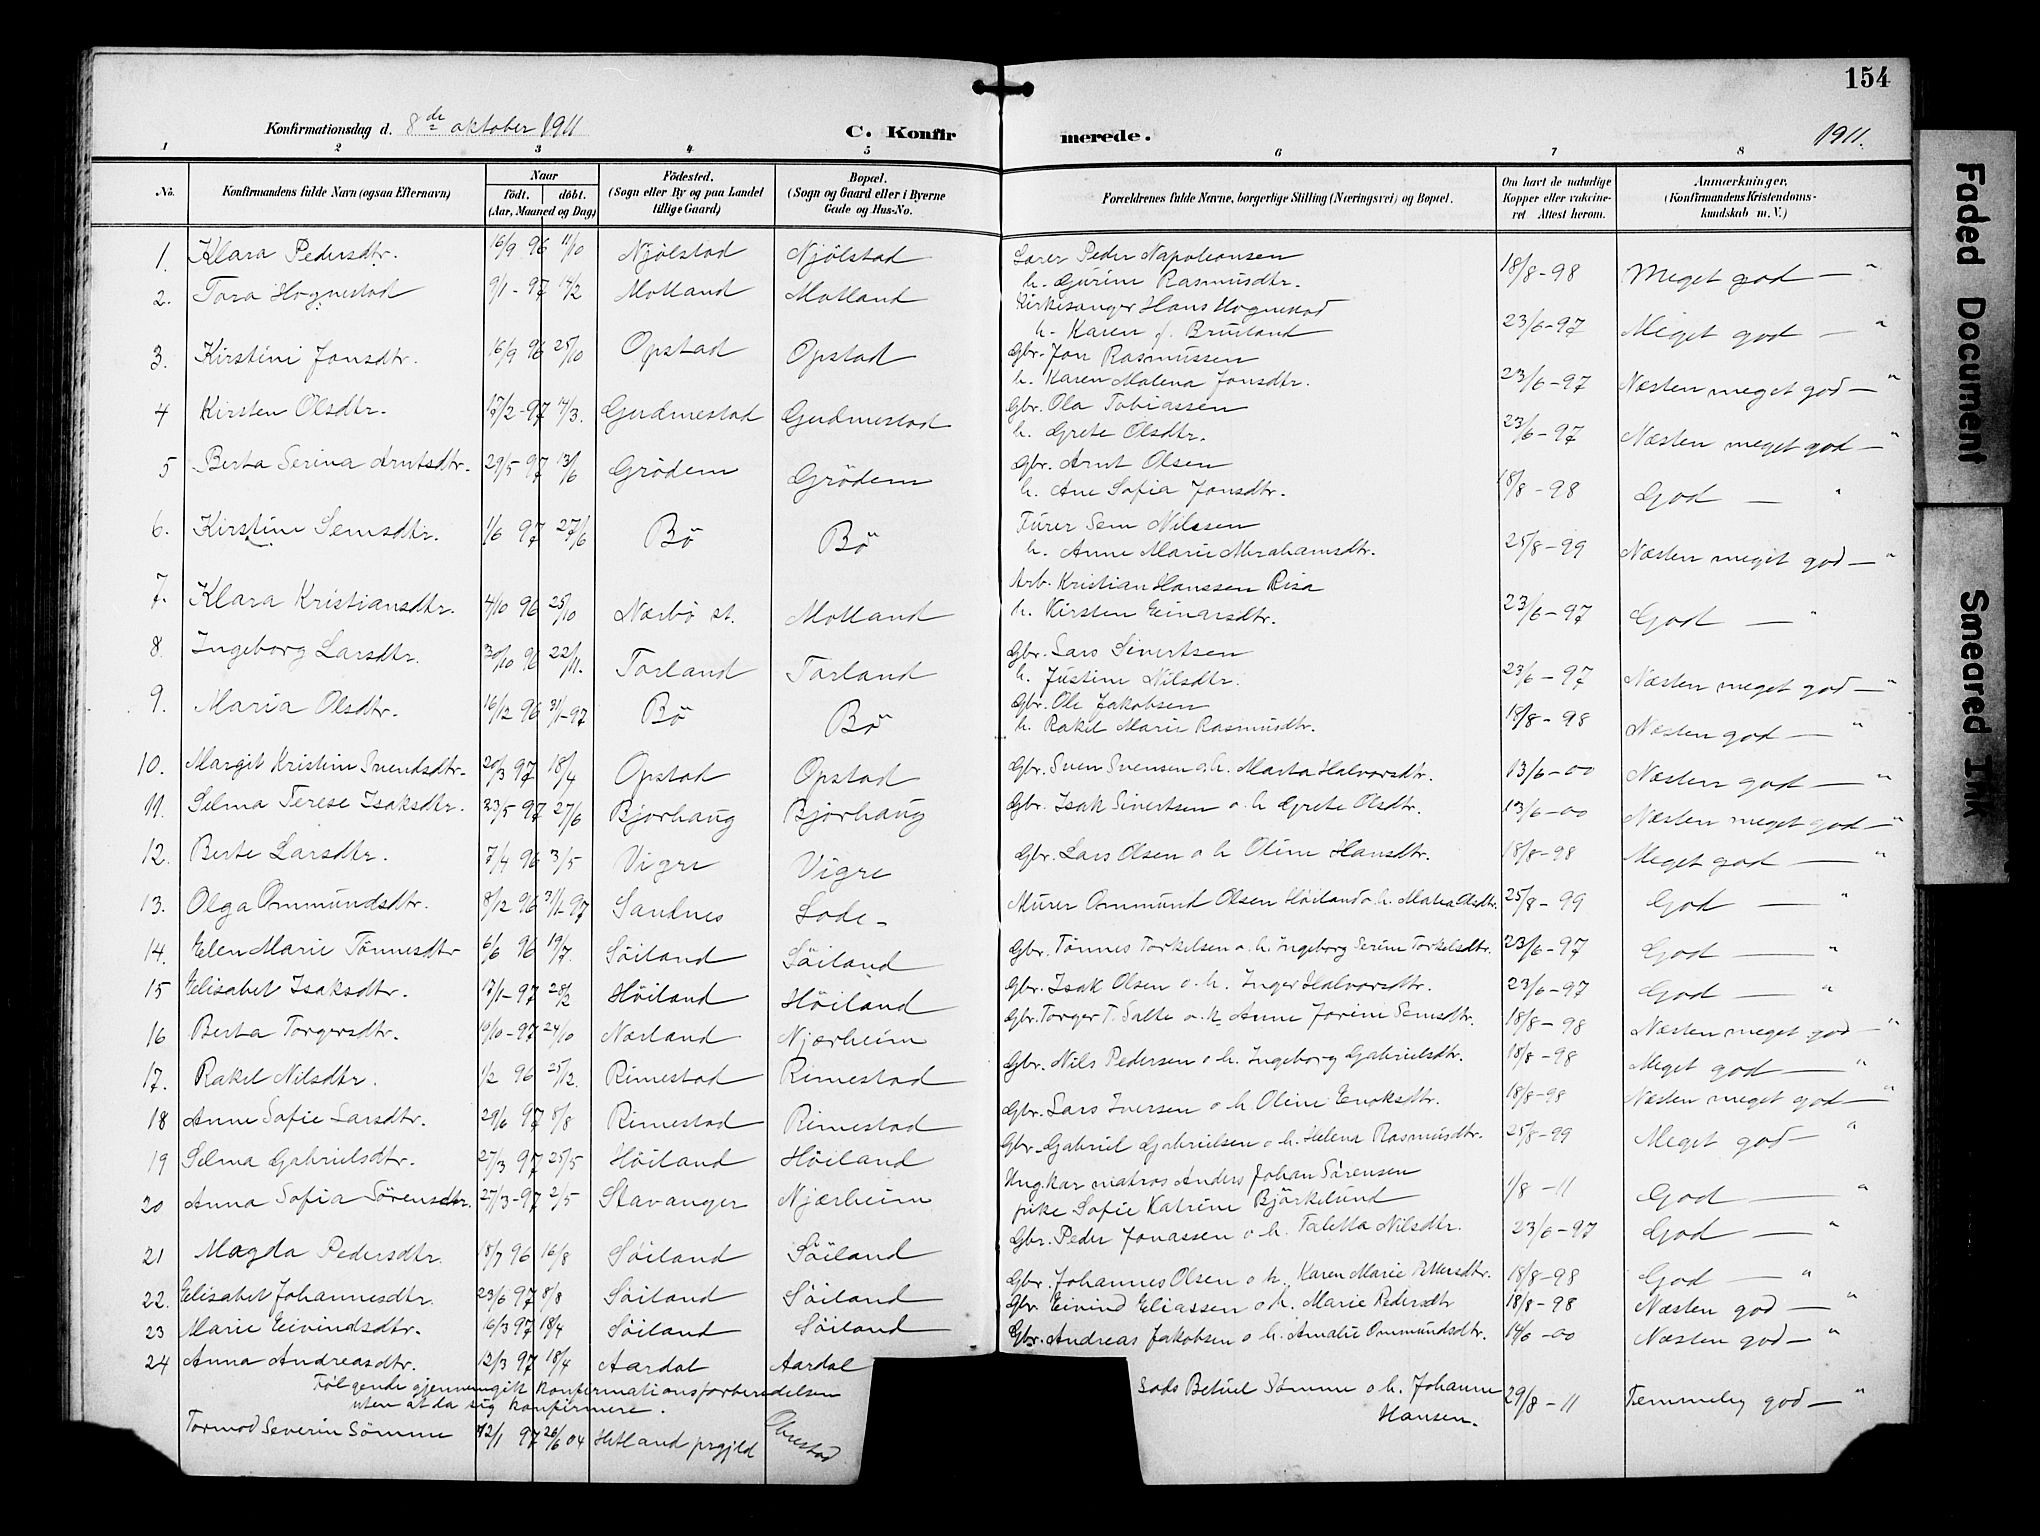 154
Konfirmationsdag d. 8de oktober 1911
C. Konfirmerede.
1911.
1 2 3 4 5 6 7 8
No. Konfirmandens fulde Navn (ogsaa Efternavn) Naar födt. döbt. (Aar, Maaned og Dag) Födested. (Sogn eller By og paa Landet tillige Gaard) Bopæl. (Sogn og Gaard eller i Byerne Gade og Hus-No. Forældrenes fulde Navne, borgerlige Stilling (Næringsvei) og Bopæl. Om havt de naturlige Kopper eller vaccineret Attest herom. Anmærkninger, (Konfirmandens Kristendomskundskab m. V.)
1. Klara Pedersdtr. 16/9 96 11/10 Njölstad Njölstad Lærer Peder Napoleonsen h. Gurine Rasmusdtr. 18/8-98 Meget god — "
2. Tora Hognestad 9/1-97 14/2 Motland Motland Kirkesanger Hans Hognestad h. Karen f. Bruland 23/6-97 Meget god — "
3. Kirstine Jonsdtr. 16/9 96 25/10 Opstad Opstad Gbr. Jon Rasmussen h. Karen Malena Jonsdtr. 23/6-97 Næsten meget god — "
4 Kirsten Olsdtr. 17/2-97 14/3. Gudmestad Gudmestad Gbr. Ola Tobiassen h. Grete Olsdtr. 23/6-97 Næsten meget god — "
5 Berta Serina Arntsdtr. 29/5 97 13/6 Grödem Grödem Gbr. Arnt Olsen h. Ane Sofia Jonsdtr. 18/8-98 God — "
6. Kirstine Semsdtr. 1/6 97 27/6 Bö Bö Furer Sem Nilssen h. Anne Marie Abrahamsdtr. 25/8-99 Næsten meget god — "
7. Klara Kristiansdtr. 4/10 96 25/10 Nærbö st. Motland Arb. Kristian Hanssen Risa h. Kirsten Einarsdtr. 23/6-97 God — "
8. Ingeborg Larsdtr. 30/10 96 22/11. Torland Torland Gbr. Lars Sivertsen h. Justine Nilsdtr. 23/6-97 Næsten meget god — "
9. Maria Olsdtr. 16/12 96 31/1-97 Bö Bö Gbr. Ole Jakobsen h. Rakel Marie Rasmusdtr. 18/8-98 Næsten god — "
10. Margit Kristine Svendsdtr. 20/3 97 18/4 Opstad Opstad Gbr. Sven Svensen o. h. Marta Halvorsdtr. 13/6-00 Næsten god — "
11. Selma Terese Isaksdtr. 23/5 97 27/6 Bjorhaug Bjorhaug Gbr. Isak Sivertsen o h Grete Olsdtr. 13/6-00 Næsten meget god — "
12. Berte Larsdtr. 7/4 96 3/5 Vigre Vigre Gbr. Lars Olsen o h Oline Hansdtr. 18/8-98 Meget god — "
13. Olga Ommundsdtr. 8/12 96 31/1-97 Sandnes Lode- Murer Ommund Olsen Höiland o h. Malea Olsdtr. 25/8-99 God — "
14. Elen Marie Tönnesdtr 6/6 96 19/7. Söiland Söiland Gbr. Tönnes Torkelsen o. h. Ingeborg Serine Torkelsdtr. 23/6-97 God — "
15 Elisabet Isaksdtr. 17/1-97 28/2 Höiland Höiland Gbr. Isak Olsen o. h. Inger Halvorsdtr. 23/6-97 God — "
16 Berta Torgersdtr. 10/10-97 24/10 Nærland Njærheim Gbr. Torger T. Salte o. h Anne Jorine Semsdtr. 18/8-98 Næsten meget god — "
17. Rakel Nilsdtr. 1/2 96 25/12. Rimestad Rimestad Gbr. Nils Pedersen o h. Ingeborg Gabrielsdtr. 18/8-98 Meget god — "
18 Anne Sofie Larsdtr. 29/6 97 8/8 Rimestad Rimestad Gbr. Lars Iversen o h Oline Enoksdtr. 18/8-98 Næsten meget god — "
19 Selma Gabrielsdtr. 27/3 97 25/5 Höiland Höiland Gbr. Gabriel Gabrielsen o h. Helena Rasmusdtr. 25/8-99 Meget god — "
20 Anna Sofia Sörensdtr. 27/3-97 2/5 Stavanger Njærheim Ungkar matros Anders Johan Sörensen pike Sofie Katrine Björkelund 1/8-11 God — "
21 Magda Pedersdtr. 18/7 96 16/8 Söiland Söiland Gbr. Peder Jonassen o h. Taletta Nilsdtr. 23/6-97 God — "
22. Elisabet Johannesdtr. 23/6 97 8/8 Söiland Söiland Gbr. Johannes Olsen o h. Karen Marie Pettersdtr. 18/8-98 God — "
23 Marie Eivindsdtr. 16/3 97 18/4 Söiland Söiland Gbr Eivind Eliassen o h. Marie Pedersdtr 18/8-98 Næsten god — "
24 Anna Andreasdtr. 12/3 97 18/4 Aardal Aardal Gbr. Andreas Jakobsen o h. Amalie Ommundsdtr. 14/6-00 Næsten god — "
Fölgende gjennemgik konfirmationsforberedelsen
uten at la sig konfirmere.
Tormod Severin Sömme 12/1 97 26/6 04 Hetland prgjeld Obrestad Betuel Sömme o h. Johanne Hansen. 29/8-11 Temmelig god — "
Faded Document
Smeared Ink